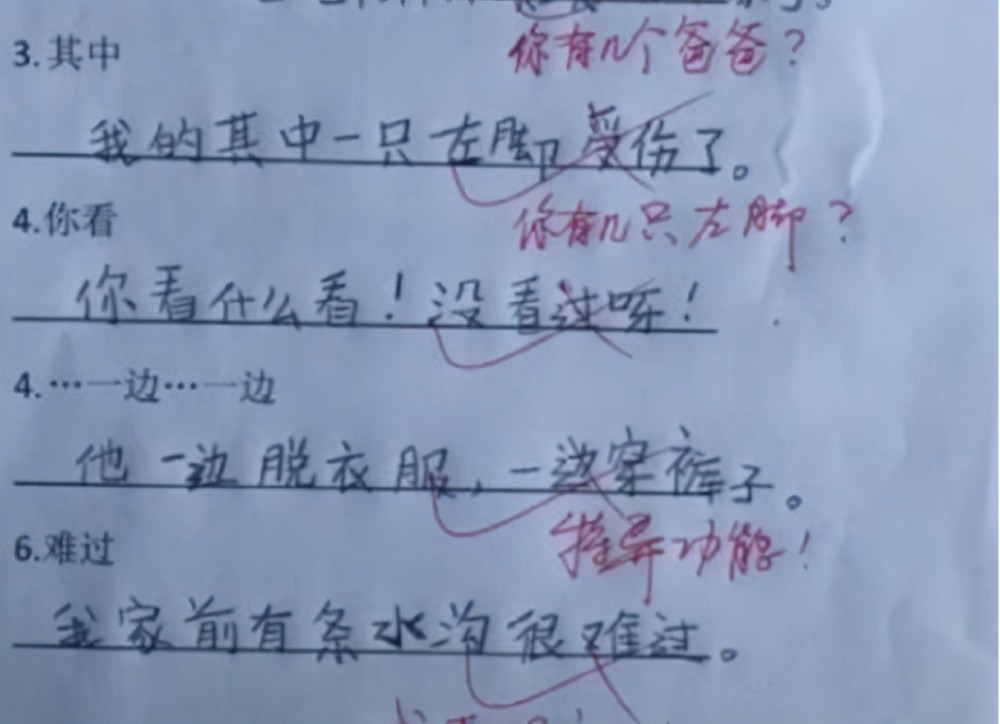 你有几个爸爸？
3.其中
我的其中一只左脚受伤了。
你有几只左脚？
4.你看
你看什么看！没看过呀！
4.…一边…一边
他一边脱衣服，一边穿裤子。
特异功能！
6.难过
我家前有条水沟很难过。